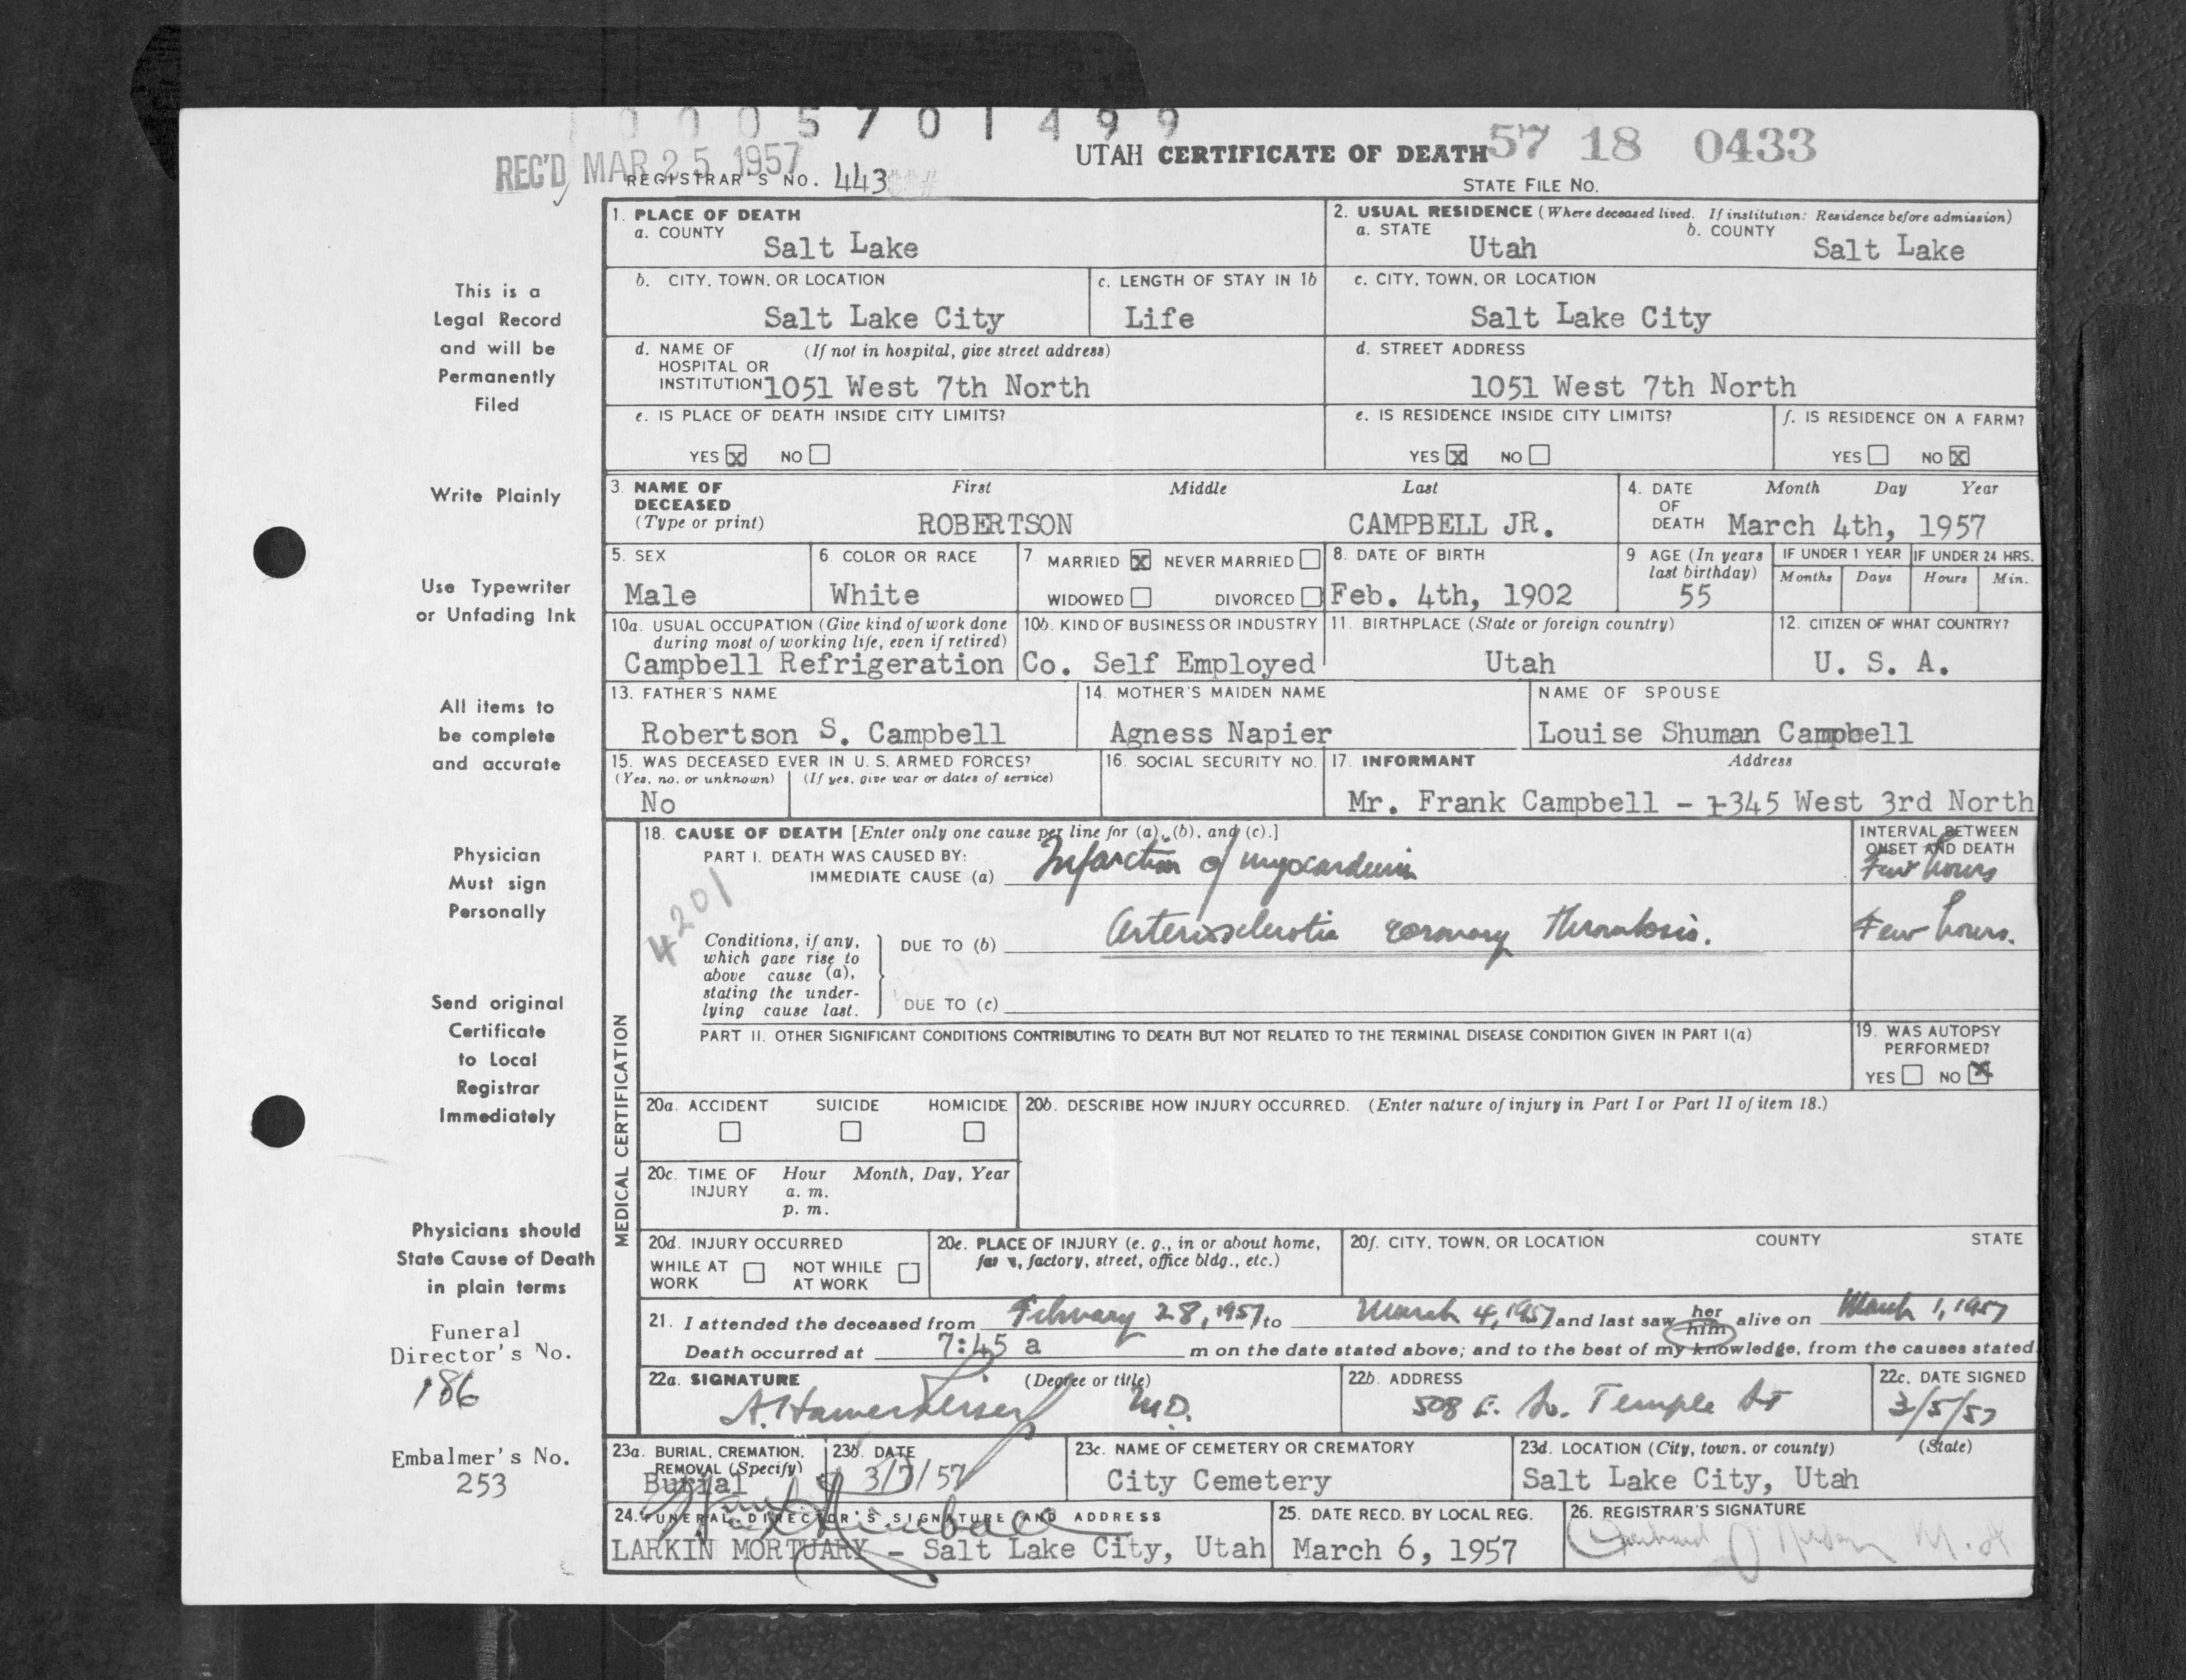 0 0 0 5 7 0 1 4 9 9
REC'D MAR 25 1957
REGISTRAR'S NO. 443
UTAH CERTIFICATE OF DEATH 57 18 0433
STATE FILE NO.
This is a
Legal Record
and will be
Permanently
Filed
Write Plainly
Use Typewriter
or Unfading Ink
All items to
be complete
and accurate
Physician
Must sign
Personally
Send original
Certificate
to Local
Registrar
Immediately
Physicians should
State Cause of Death
in plain terms
Funeral
Director's No.
186
Embalmer's No.
253
1. PLACE OF DEATH
a. COUNTY
Salt Lake
2. USUAL RESIDENCE (Where deceased lived. If institution: Residence before admission)
a. STATE
Utah
b. COUNTY
Salt Lake
b. CITY, TOWN, OR LOCATION
Salt Lake City
c. LENGTH OF STAY IN 1b
Life
c. CITY, TOWN, OR LOCATION
Salt Lake City
d. NAME OF (If not in hospital, give street address)
HOSPITAL OR
INSTITUTION 1051 West 7th North
d. STREET ADDRESS
1051 West 7th North
e. IS PLACE OF DEATH INSIDE CITY LIMITS?
YES X NO
e. IS RESIDENCE INSIDE CITY LIMITS?
YES X NO
f. IS RESIDENCE ON A FARM?
YES NO X
3. NAME OF
DECEASED
(Type or print)
First Middle Last
ROBERTSON CAMPBELL JR.
4. DATE
OF
DEATH
Month Day Year
March 4th, 1957
5. SEX
Male
6 COLOR OR RACE
White
7 MARRIED X NEVER MARRIED
WIDOWED DIVORCED
8. DATE OF BIRTH
Feb. 4th, 1902
9 AGE (In years
last birthday)
55
IF UNDER 1 YEAR
Months Days
IF UNDER 24 HRS.
Hours Min.
10a. USUAL OCCUPATION (Give kind of work done
during most of working life, even if retired)
Campbell Refrigeration
10b. KIND OF BUSINESS OR INDUSTRY
Co. Self Employed
11. BIRTHPLACE (State or foreign country)
Utah
12. CITIZEN OF WHAT COUNTRY?
U. S. A.
13. FATHER'S NAME
Robertson S. Campbell
14. MOTHER'S MAIDEN NAME
Agness Napier
NAME OF SPOUSE
Louise Shuman Campbell
15. WAS DECEASED EVER IN U. S. ARMED FORCES?
(Yes, no, or unknown) (If yes, give war or dates of service)
No
16. SOCIAL SECURITY NO.
17. INFORMANT Address
Mr. Frank Campbell - 1345 West 3rd North
MEDICAL CERTIFICATION
18. CAUSE OF DEATH [Enter only one cause per line for (a), (b), and (c).]
PART I. DEATH WAS CAUSED BY:
IMMEDIATE CAUSE (a) Infarction of myocardium
INTERVAL BETWEEN
ONSET AND DEATH
Few hours
4201
Conditions, if any,
which gave rise to
above cause (a),
stating the under-
lying cause last.
DUE TO (b) Arteriosclerotic coronary thrombosis.
Few hours.
DUE TO (c)
PART II. OTHER SIGNIFICANT CONDITIONS CONTRIBUTING TO DEATH BUT NOT RELATED TO THE TERMINAL DISEASE CONDITION GIVEN IN PART I(a)
19. WAS AUTOPSY
PERFORMED?
YES NO X
20a. ACCIDENT SUICIDE HOMICIDE
20b. DESCRIBE HOW INJURY OCCURRED. (Enter nature of injury in Part I or Part II of item 18.)
20c. TIME OF Hour Month, Day, Year
INJURY a. m.
p. m.
20d. INJURY OCCURRED
WHILE AT NOT WHILE
WORK AT WORK
20e. PLACE OF INJURY (e. g., in or about home,
factory, street, office bldg., etc.)
20f. CITY, TOWN, OR LOCATION COUNTY STATE
21. I attended the deceased from February 28, 1957, to March 4, 1957 and last saw her him alive on March 1, 1957
Death occurred at 7:45 a m on the date stated above; and to the best of my knowledge, from the causes stated
22a. SIGNATURE (Degree or title)
M.D.
22b. ADDRESS
508 E. So. Temple St
22c. DATE SIGNED
3/5/57
23a. BURIAL, CREMATION,
REMOVAL (Specify)
Burial
23b. DATE
3/7/57
23c. NAME OF CEMETERY OR CREMATORY
City Cemetery
23d. LOCATION (City, town, or county) (State)
Salt Lake City, Utah
24. FUNERAL DIRECTOR'S SIGNATURE AND ADDRESS
LARKIN MORTUARY - Salt Lake City, Utah
25. DATE RECD. BY LOCAL REG.
March 6, 1957
26. REGISTRAR'S SIGNATURE